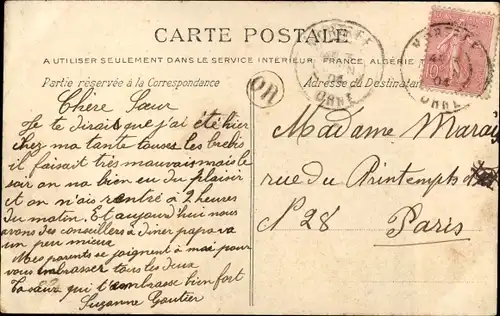 CARTE POSTALE
A UTILISER SEULEMENT DANS LE SERVICE INTERIEUR, FRANCE, ALGÉRIE
Partie réservée à la Correspondance
Adresse du Destinataire
MORTRÉE
04
ORNE
MORTRÉE
04
ORNE
OR
Chère Sœur
Je te dirais que j'ai été hier
chez ma tante tousser les brebis
il faisait très mauvais mais le
soir on na bien eu du plaisir
et on n'ais rentré a 2 heures
du matin. Et aujourd'hui nous
avons des conseillers à diner papa va
un peu mieux
Mes parents se joignent à moi pour
vous embrasser tous les deux
Ta sœur qui t'embrasse bien fort
Suzanne Gautier
Madame Marais
rue du Printemps
N 28
Paris